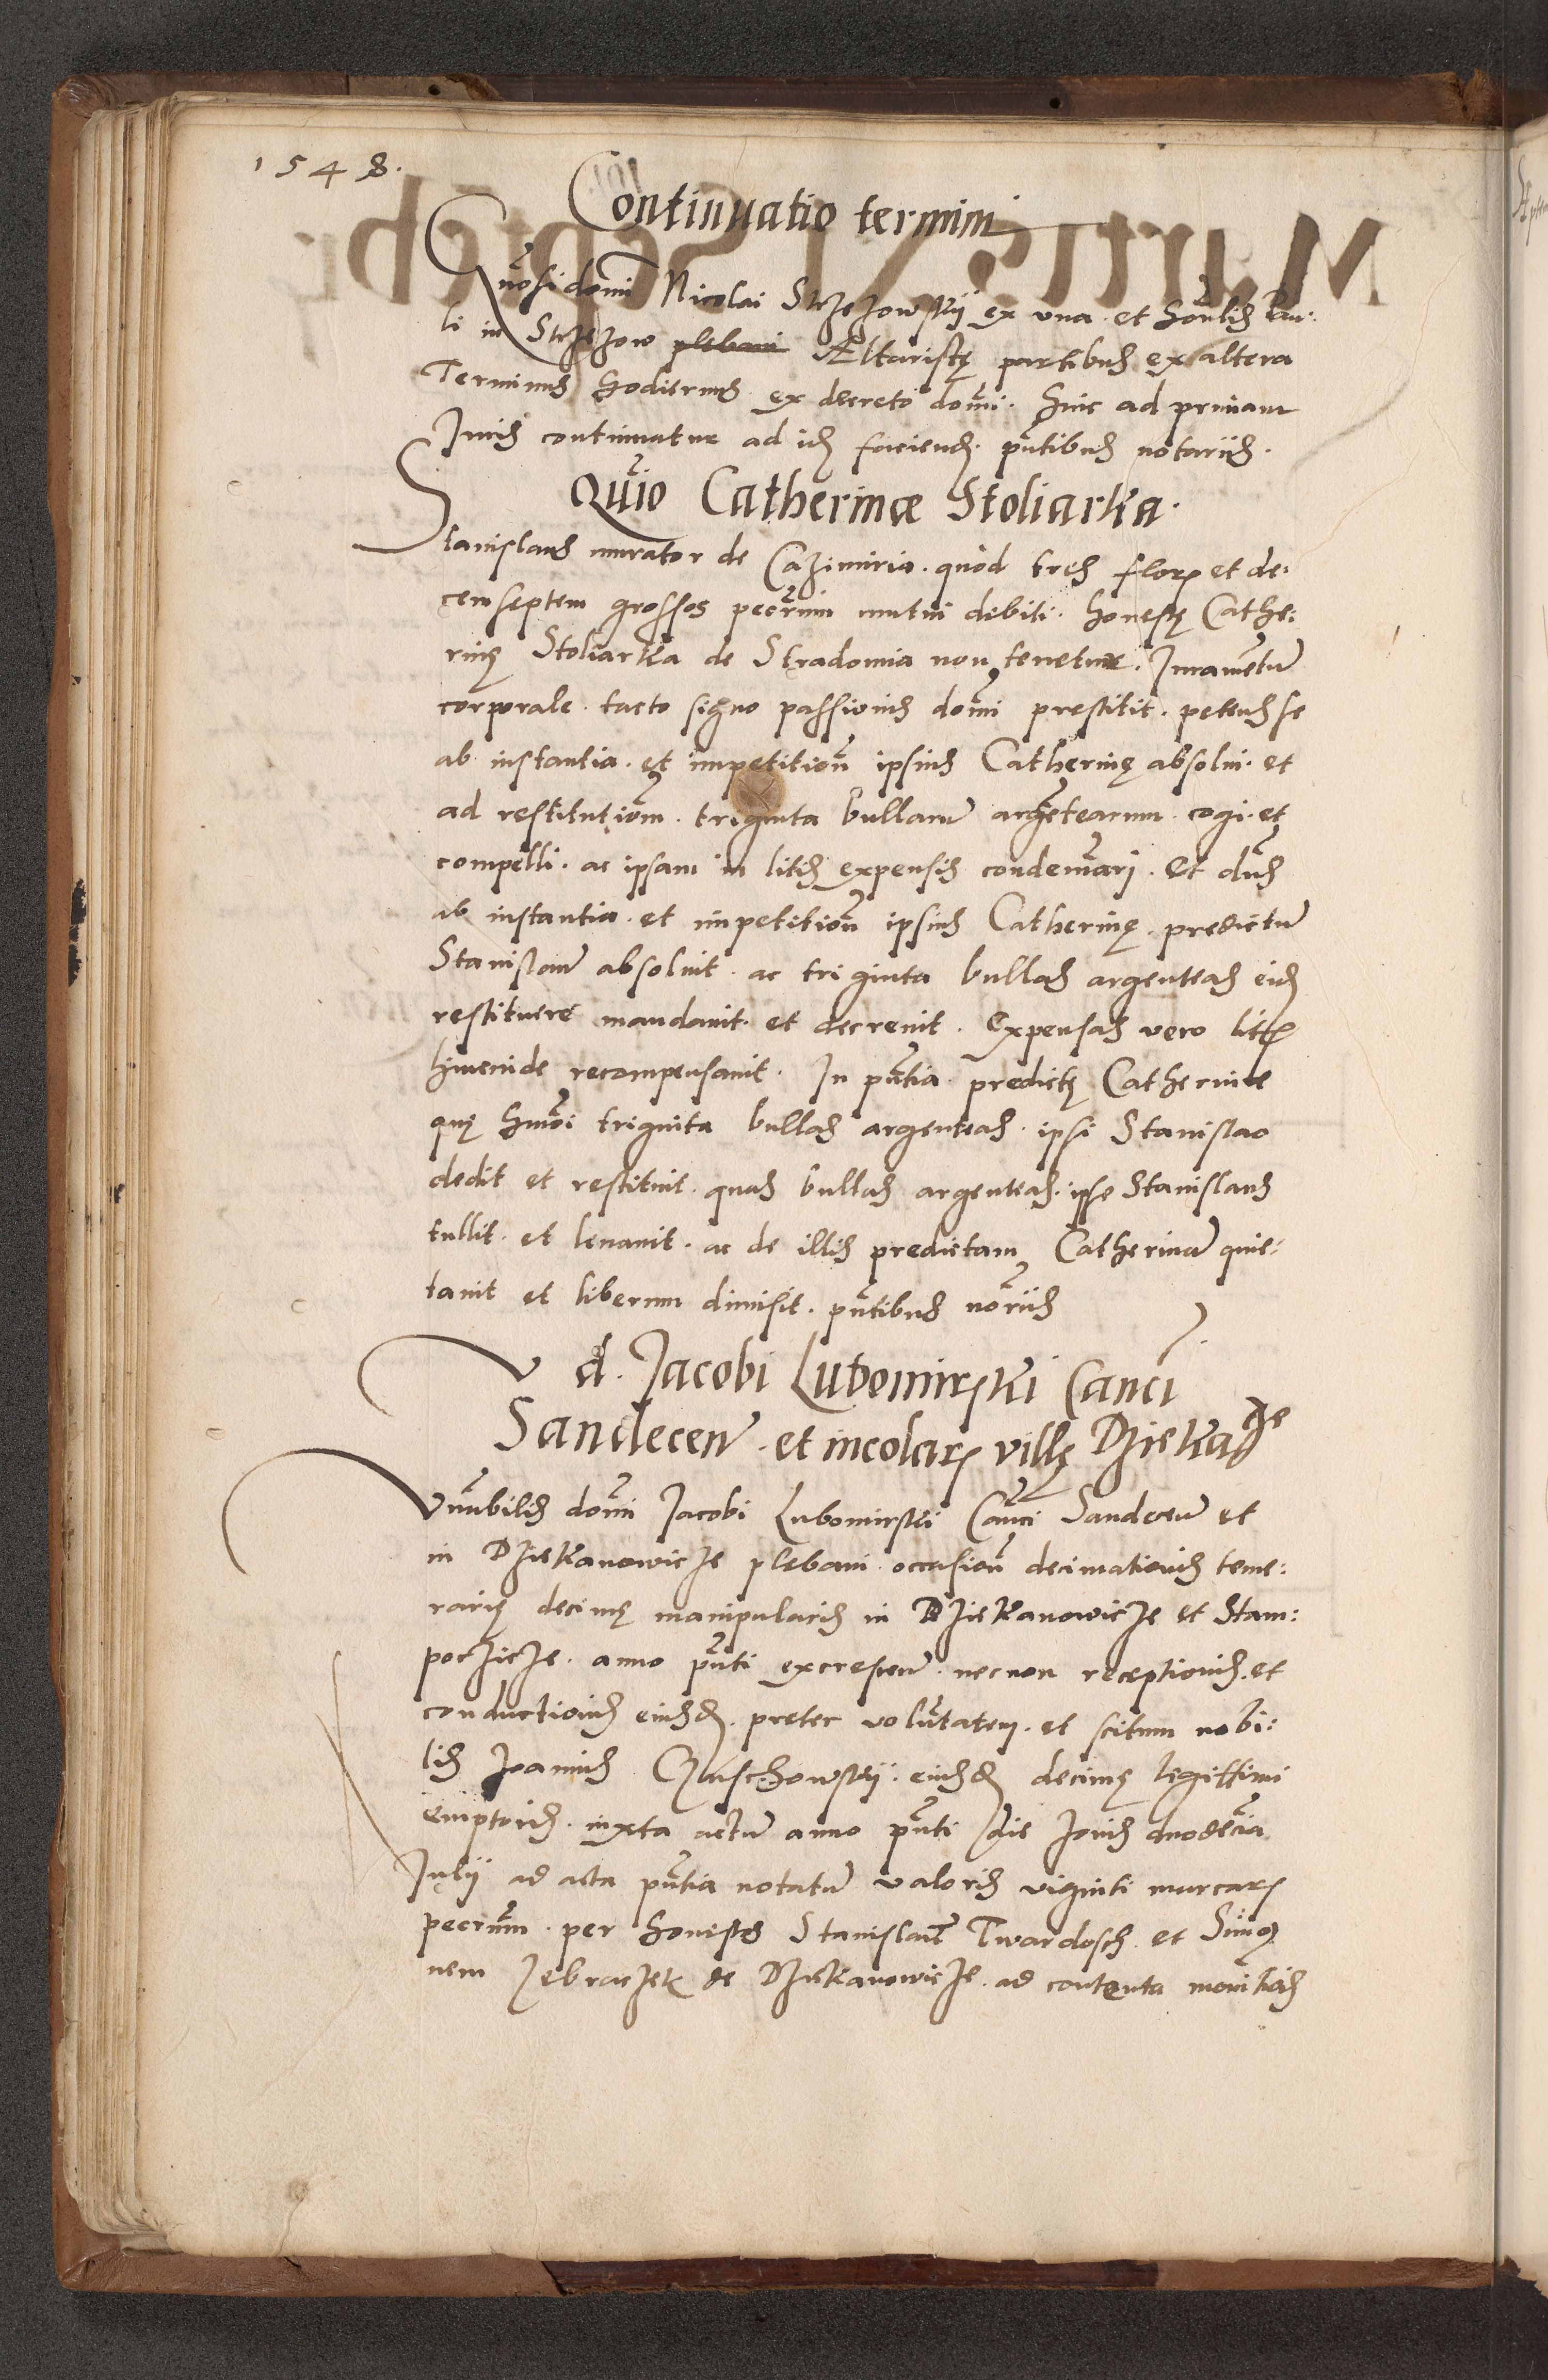 1548.
Continuatio termini
Gnosi domi Nicolai Strzezowskij ex vna et honlis Pau:
li in Strzezow plebani Altaristę partibus ex altera
Terminus hodiernus ex decreto domi. hinc ad primam
Juris continuatur ad idem faciend. pntibus notariis.
Quio Catherinæ Stoliarka.
Stanislaus murator de Cazimiria. quod tres flor et de:
cemseptem grossos pecrum mutui debiti. honestę Cathe:
rinę Stoliarka de Stradomia non tenetur. Iuramentum
corporale. tacto signo passionis domi prestitit. petens se
ab instantia. et impetition ipsius Catherinę absolui. et
ad restitutiom. triginta bullarum argetearum. cogi. et
compelli. ac ipsam in litis expensis condemari. Et dns
ab instantia. et impetition ipsius Catherinę. predictum
Stanislaum absoluit. ac triginta bullas argenteas eid
restituere mandauit. et decreuit. Expensas vero litis
hincinde recompensauit. In pntia predictę Catherinæ
quę hmoi triginta bullas argenteas. ipsi Stanislao
dedit et restituit. quas bullas argenteas. ipse Stanislaus
tullit. et leuauit. ac de illis predictam Catherinam quie:
tauit et liberum dimisit. pntibus noriis
d. Jacobi Lubomirski Canci
Sandecen. et incolar villę Dziekaze
Vnubilis domi Jacobi Lubomirski Canci Sandecen et
in Dziekanowicze plebani. occasion decimationis teme:
rarię decimę manipularis in Dziekanowicze et Stam:
poczicze. anno pnti excrescen. necnon receptionis. et
conductionis eiusd. preter voluntatem. et scitum nobi:
lis Joannis eiusd decimę legittimi
emptoris. iuxta actum anno pnti die Jouis duodecia
Julij ad acta pntia notatum valoris viginti marcar
pecrum. per honestos Stanislaum Twardosch. et Simo
nem Zebraczek de Dziekanowicze. ad contenta monitis